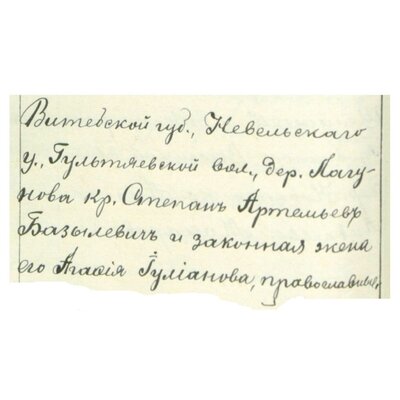 Витебской губ., Невельскаго
у., Гультяевской вол., дер. Лагу-
нова кр. Степанъ Артемьевъ
Базылевичъ и законная жена
его Агафія Іуліанова, православные,